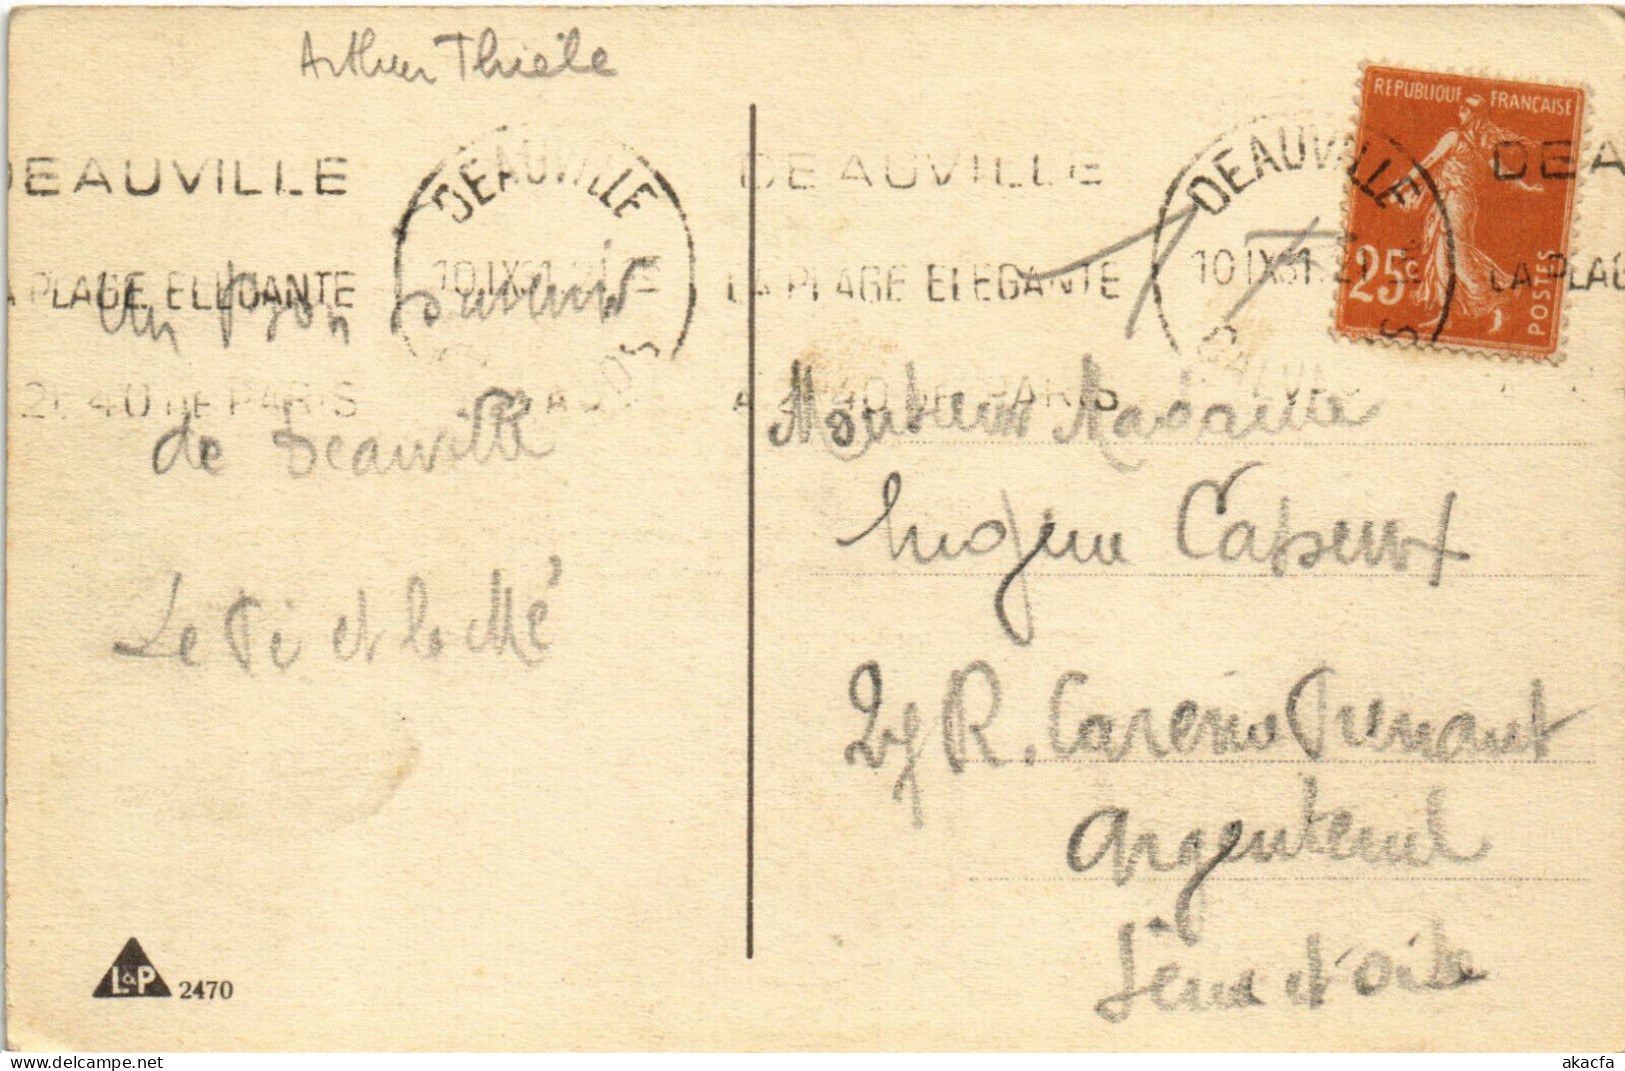 Arthur Thiele
DEAUVILLE
LA PLAGE ELEGANTE
A 2H 40 DE PARIS
DEAUVILLE
10.IX.31
CALVADOS
DEAUVILLE
LA PLAGE ELEGANTE
A 40 DE PARIS
DEAUVILLE
10 IX 31
CALVADOS
DEA
LA PLAG
REPUBLIQUE FRANÇAISE
25c
POSTES
Un bon souvenir
de Deauville
Le Pi et la Mé
Monsieur Madame
R. Prenant
Argenteuil
Seine et Oise
L&P 2470
akacfa